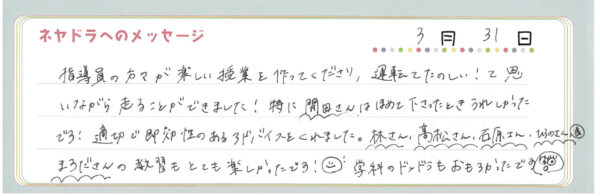 ネヤドラへのメッセージ
3月 31日
指導員の方々が楽しい授業を作ってくださり、運転てたのしい!て思
いながら走ることができました!特に間田さんはほめて下さったときうれしかった
です!適切で即効性のあるアドバイスをくれました。林さん、高松さん、石原さん、
まろださんの教習もとても楽しかったです! 学科のドッドラもおもろかったです